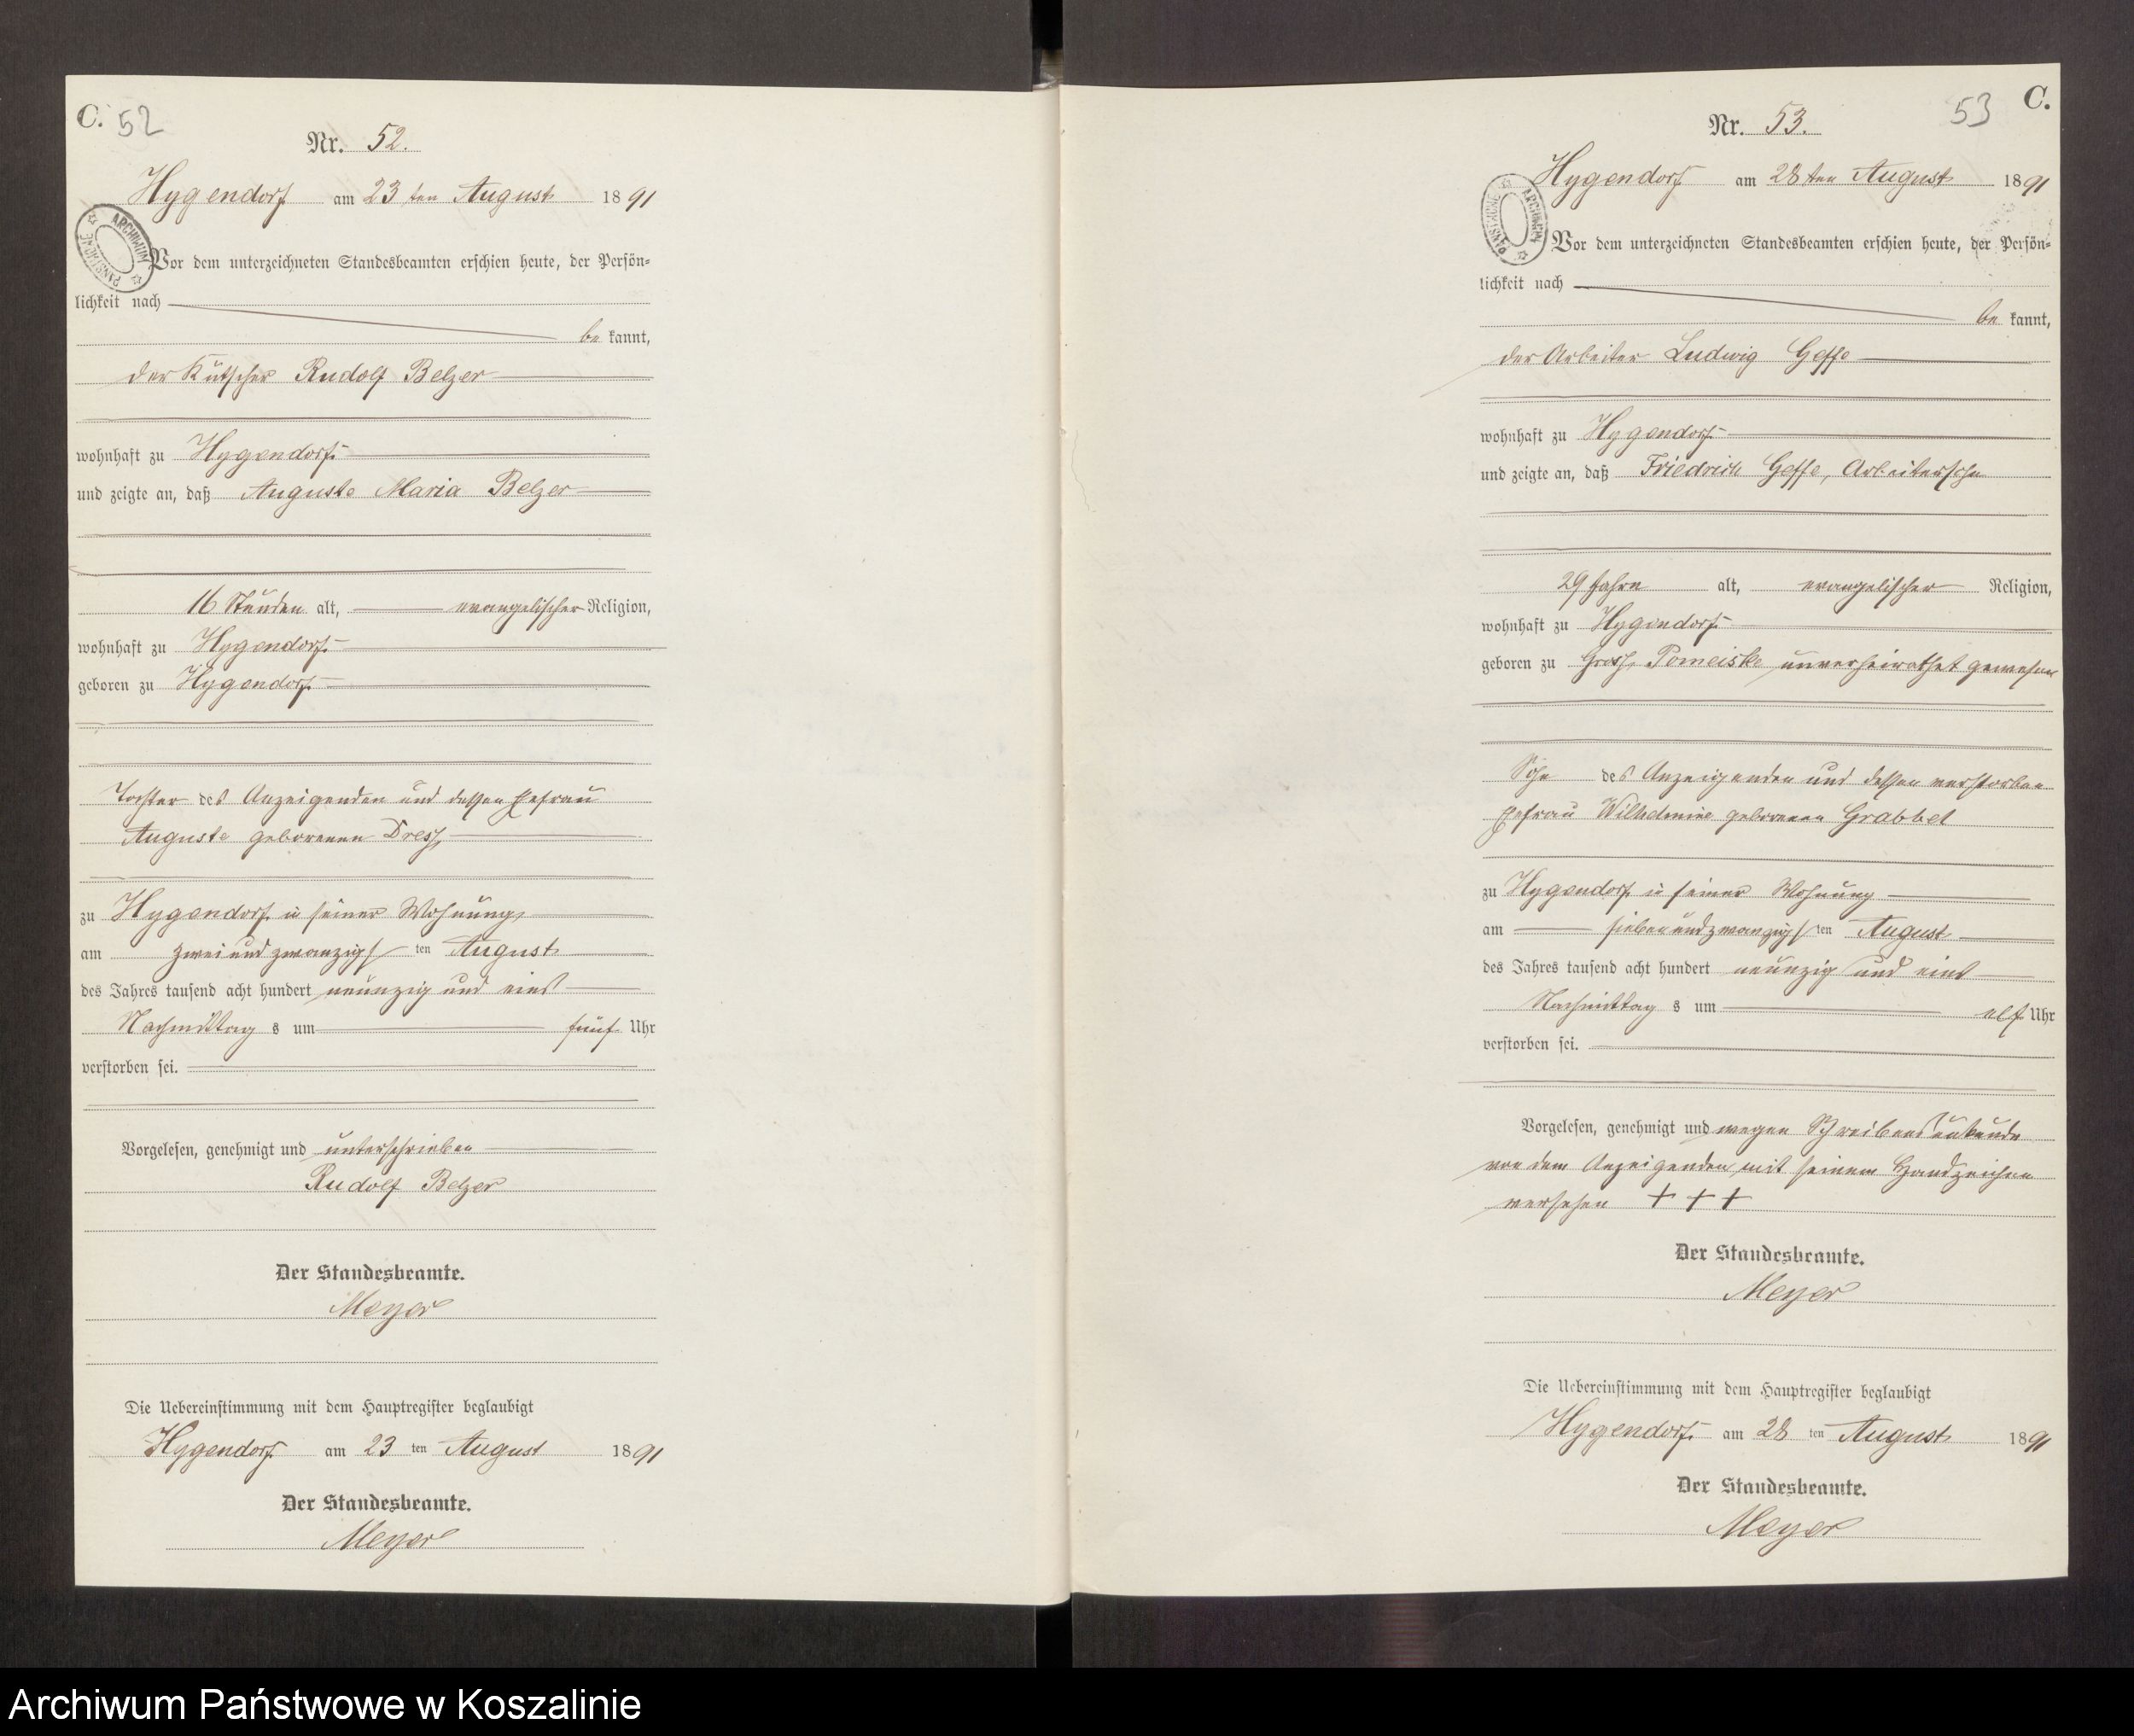 C. 52
Nr. 52.
Hygendorf am 23 ten August 1891
ARCHIWUM PAŃSTWOWE
Vor dem unterzeichneten Standesbeamten erschien heute, der Persön-
lichkeit nach
be kannt,
der Kutscher Rudolf Belzer
wohnhaft zu Hygendorf
und zeigte an, daß Auguste Maria Belzer
16 Stunden alt, evangelischer Religion,
wohnhaft zu Hygendorf
geboren zu Hygendorf
Tochter des Anzeigenden und dessen Ehefrau
Auguste geborenen Dresz
zu Hygendorf in seiner Wohnung
am zweiundzwanzigs ten August
des Jahres tausend acht hundert neunzig und eins
Nachmittag s um fünf Uhr
verstorben sei.
Vorgelesen, genehmigt und unterschrieben
Rudolf Belzer
Der Standesbeamte.
Meyer
Die Uebereinstimmung mit dem Hauptregister beglaubigt
Hygendorf am 23 ten August 1891
Der Standesbeamte.
Meyer
53 C.
Nr. 53.
Hygendorf am 28 ten August 1891
ARCHIWUM PAŃSTWOWE
Vor dem unterzeichneten Standesbeamten erschien heute, der Persön-
lichkeit nach
be kannt,
der Arbeiter Ludwig Geffe
wohnhaft zu Hygendorf
und zeigte an, daß Friedrich Geffe, Arbeitersohn
29 Jahre alt, evangelischer Religion,
wohnhaft zu Hygendorf
geboren zu Grosz Pomeiske unverheirathet gewesen
Sohn des Anzeigenden und dessen verstorben
Ehefrau Wilhelmine geborenen Grabbet
zu Hygendorf in seiner Wohnung
am siebenundzwanzigs ten August
des Jahres tausend acht hundert neunzig und eins
Nachmittag s um elf Uhr
verstorben sei.
Vorgelesen, genehmigt und wegen Schreibensunkunde
von dem Anzeigenden mit seinem Handzeichen
versehen + + +
Der Standesbeamte.
Meyer
Die Uebereinstimmung mit dem Hauptregister beglaubigt
Hygendorf am 28 ten August 1891
Der Standesbeamte.
Meyer
Archiwum Państwowe w Koszalinie